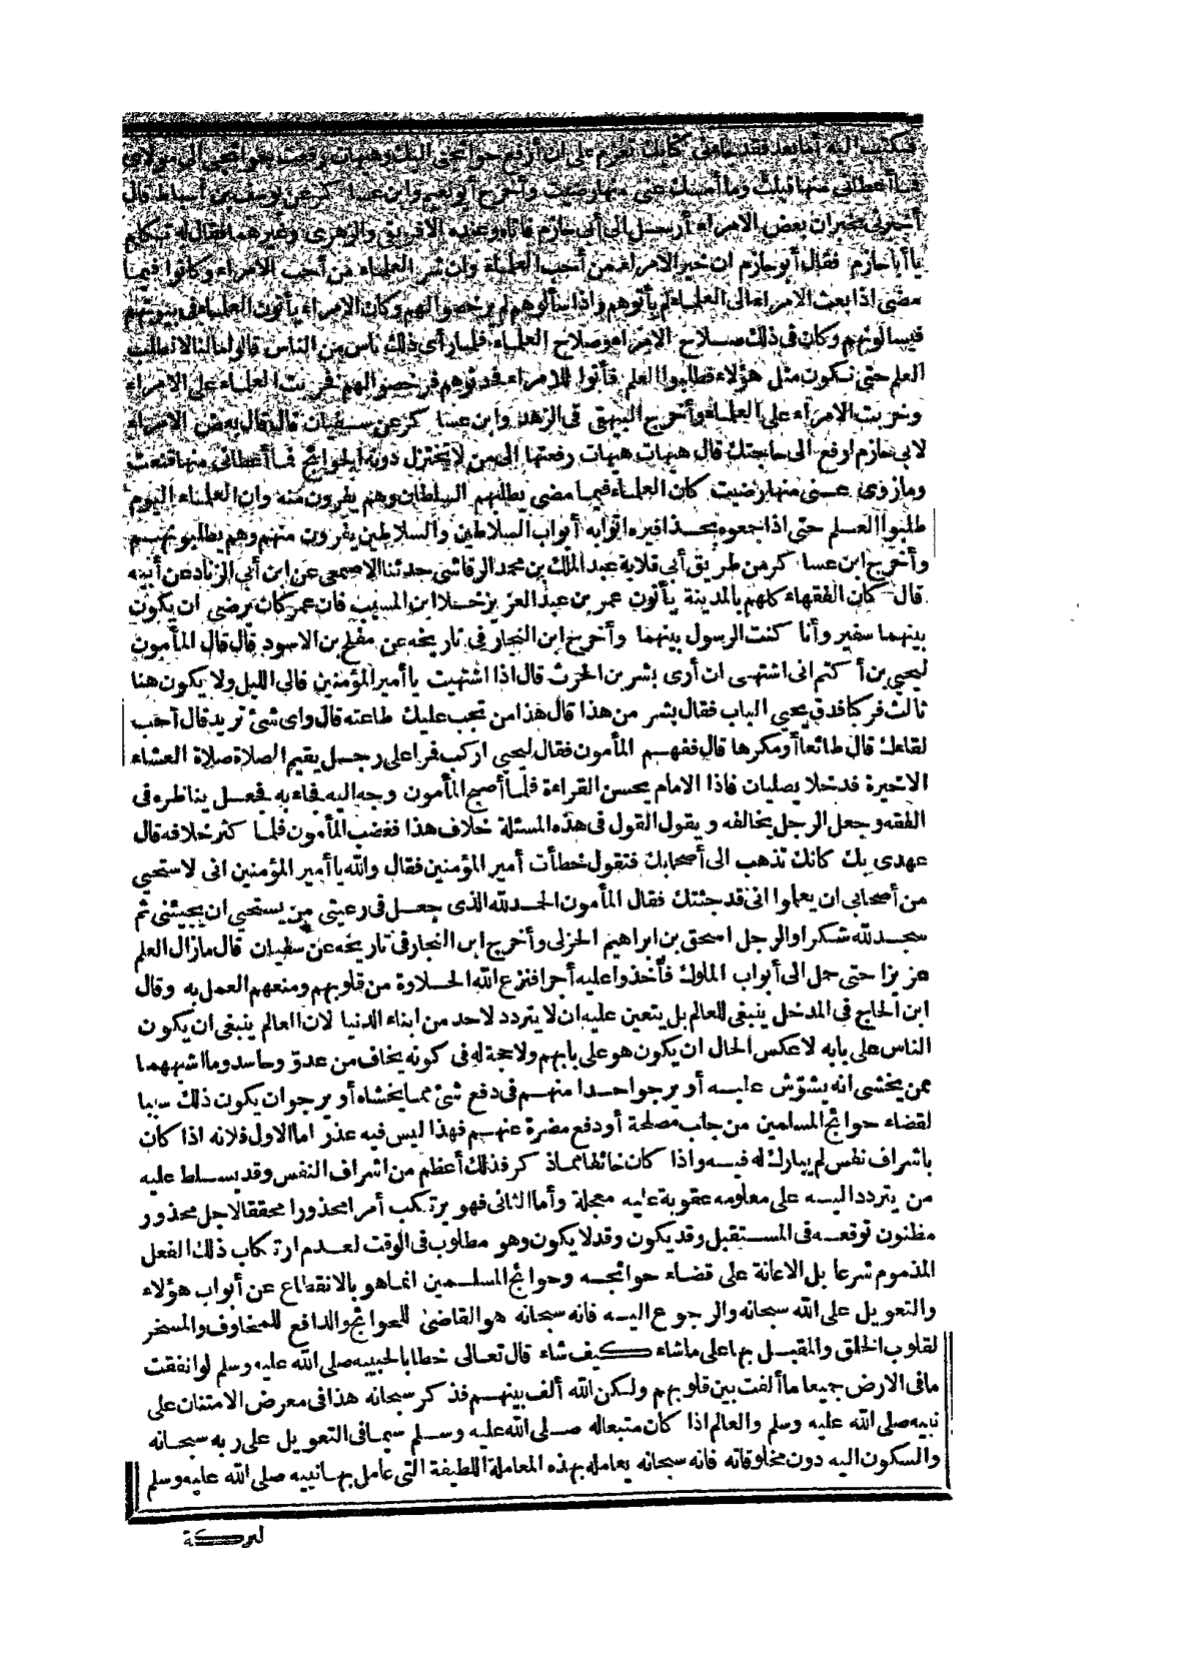 فكتب اليه أما بعد فقد جاءنى كتابك تعزم على ان أرفع حوائجى اليك وهيهات رفعت حوائجى الى مولاى
فما أعطانى منها قبلت وما أمسك عنى منها رضيت وأخرج أبو نعيم وابن عساكر عن يوسف بن أسباط قال
أخبرنى مخبر ان بعض الامراء أرسل الى أبى حازم فأتاه وعنده الافريقى والزهرى وغيرهما فقال له تكلم
يا أبا حازم فقال أبو حازم ان خير الامراء من أحب العلماء وان شر العلماء من أحب الامراء وكانوا فيما
مضى اذا بعث الامراء الى العلماء لم يأتوهم واذا سألوهم لم يرخصوا لهم وكان الامراء يأتون العلماء فى بيوتهم
فيسألونهم وكان فى ذلك صلاح الامراء وصلاح العلماء فلما رأى ذلك ناس من الناس قالوا ما لنا لا نطلب
العلم حتى نكون مثل هؤلاء فطلبوا العلم فأتوا الامراء فحدثوهم فرخصوا لهم فخربت العلماء على الامراء
وخربت الامراء على العلماء وأخرج البيهقى فى الزهد وابن عساكر عن سفيان قال قال بعض الامراء
لابى حازم ارفع الى حاجتك قال هيهات هيهات رفعتها الى من لا تختزل دونه الحوائج فما أعطانى منها قنعت
وما زوى عنى منها رضيت كان العلماء فيما مضى يطلبهم السلطان وهم يفرون منه وان العلماء اليوم
طلبوا العلم حتى اذا جمعوه بحذافيره اتوا به أبواب السلاطين والسلاطين يفرون منهم وهم يطلبونهم
وأخرج ابن عساكر من طريق أبى قلابة عبد الملك بن محمد الرقاشى حدثنا الاصمعى عن ابن أبى الزناد عن أبيه
قال كان الفقهاء كلهم بالمدينة يأتون عمر بن عبد العزيز خلا ابن المسيب فان عمر كان يرضى ان يكون
بينهما سفير وأنا كنت الرسول بينهما وأخرج ابن النجار فى تاريخه عن مفلح بن الاسود قال قال المأمون
ليحيى بن أكتم انى اشتهى ان أرى بشر بن الحرث قال اذا اشتهيت يا أمير المؤمنين فالى الليل ولا يكون هنا
ثالث فركبا فدق يحيى الباب فقال بشر من هذا قال هذا من تجب عليك طاعته قال واى شئ تريد قال أحب
لقاءك قال طائعا أو مكرها قال ففهم المأمون فقال ليحيى اركب فرا على رجل يقيم الصلاة صلاة العشاء
الاخيرة فدخلا يصليان فاذا الامام يحسن القراءة فلما أصبح المأمون وجه اليه فجاء به فجعل يناظره فى
الفقه وجعل الرجل يخالفه ويقول القول فى هذه المسئلة خلاف هذا فغضب المأمون فلما كثر خلافه قال
عهدى بك كانك تذهب الى أصحابك فتقول خطأت أمير المؤمنين فقال والله يا أمير المؤمنين انى لاستحيى
من أصحابى ان يعلموا انى قد جئتك فقال المأمون الحمد لله الذى جعل فى رعيتى من يستحيى ان يجيئنى ثم
سجد لله شكرا والرجل اسحق بن ابراهيم الحربى وأخرج ابن النجار فى تاريخه عن سفيان قال مازال العلم
عزيزا حتى حمل الى أبواب الملوك فأخذوا عليه أجرا فنزع الله الحلاوة من قلوبهم ومنعهم العمل به وقال
ابن الحاج فى المدخل ينبغى للعالم بل يتعين عليه ان لا يتردد لاحد من ابناء الدنيا لان العالم ينبغى ان يكون
الناس على بابه لا عكس الحال ان يكون هو على بابهم ولا حجة له فى كونه يخاف من عدو وحاسد وما اشبههما
ممن يخشى انه يشوش عليه أو يرجو احدا منهم فى دفع شئ مما يخشاه أو يرجو ان يكون ذلك سببا
لقضاء حوائج المسلمين من جلب مصلحة أو دفع مضرة عنهم فهذا ليس فيه عذر اما الاول فلانه اذا كان
باشراف نفس لم يبارك له فيه واذا كان خائفا مما ذكر فذلك أعظم من اشراف النفس وقد يسلط عليه
من يتردد اليه على معلومه عقوبة عليه معجلة وأما الثانى فهو يرتكب أمرا محذورا محققا لاجل محذور
مظنون توقعه فى المستقبل وقد يكون وقد لا يكون وهو مطلوب فى الوقت لعدم ارتكاب ذلك الفعل
المذموم شرعا بل الاعانة على قضاء حوائجه وحوائج المسلمين انما هو بالانقطاع عن أبواب هؤلاء
والتعويل على الله سبحانه والرجوع اليه فانه سبحانه هو القاضى للحوائج والدافع للمخاوف والمسخر
لقلوب الخلق والمقبل بها على ما شاء كيف شاء قال تعالى خطابا لحبيبه صلى الله عليه وسلم لو انفقت
ما فى الارض جميعا ما ألفت بين قلوبهم ولكن الله ألف بينهم فذكر سبحانه هذا فى معرض الامتنان على
نبيه صلى الله عليه وسلم والعالم اذا كان متبعا له صلى الله عليه وسلم سيما فى التعويل على ربه سبحانه
والسكون اليه دون مخلوقاته فانه سبحانه يعامله بهذه المعاملة اللطيفة التى عامل بها نبيه صلى الله عليه وسلم
لبركة